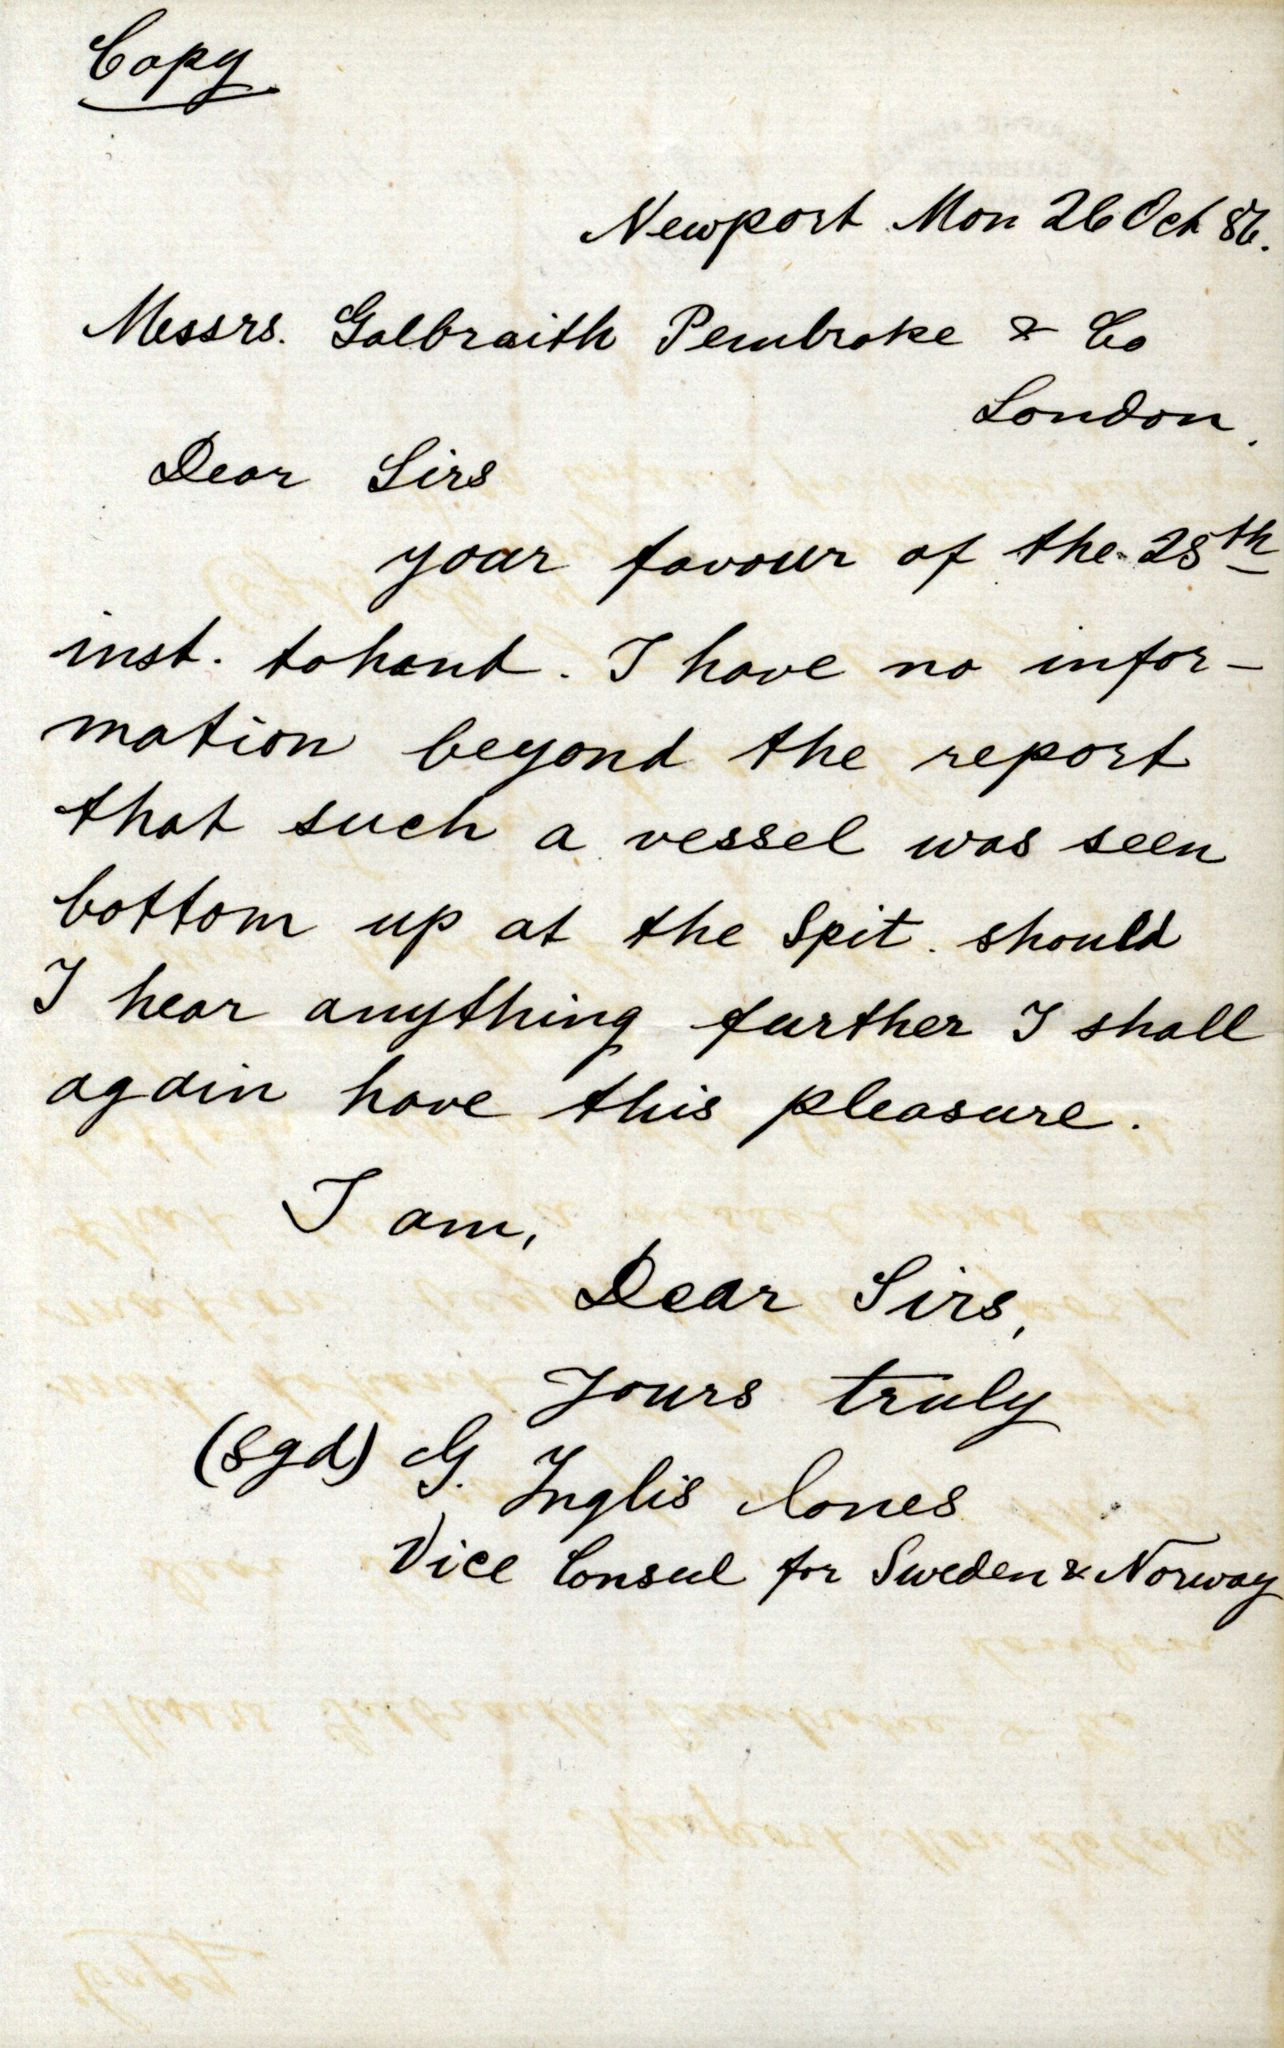 Copy
Newport Mon 26 Oct 86.
Messrs. Galbraith Pembroke & Co
London.
Dear Sirs
your favour of the 25th
inst. to hand. I have no infor-
mation beyond the report
that such a vessel was seen
bottom up at the Spit. should
I hear anything further I shall
again have this pleasure.
I am,
Dear Sirs,
Yours truly
(Sgd) G. Inglis Jones
Vice Consul for Sweden & Norway